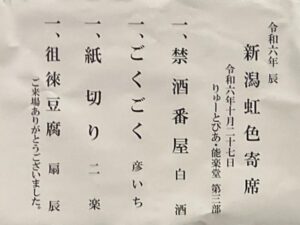 令和六年 辰
新潟虹色寄席
令和六年十月二十七日
りゅーとぴあ・能楽堂 第三部
一、禁酒番屋 白酒
一、ごくごく 彦いち
一、紙切り 二楽
一、徂徠豆腐 扇辰
ご来場ありがとうございました。